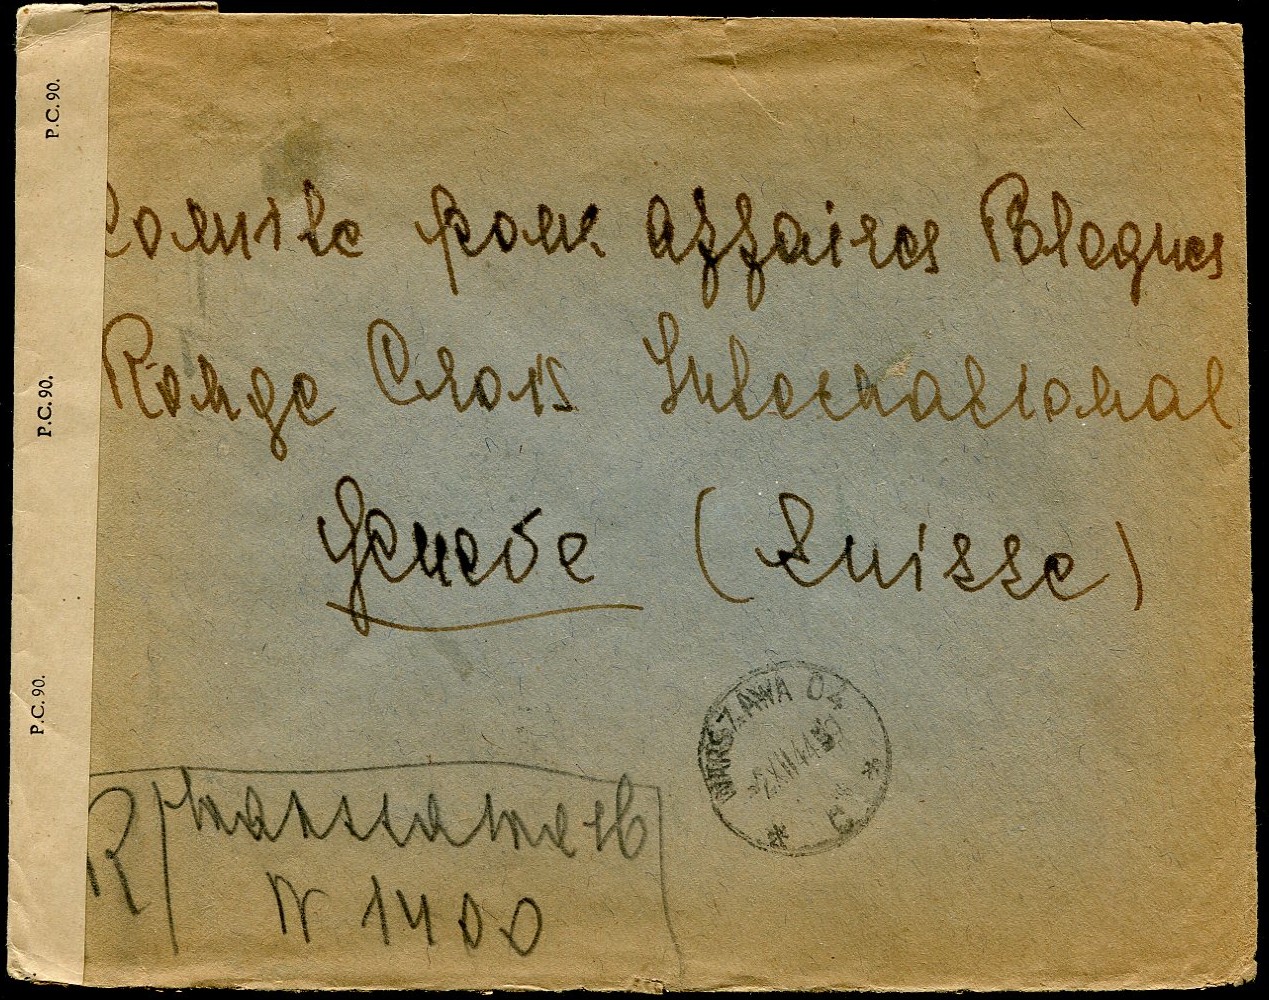 P.C. 90.
P.C. 90.
P.C. 90.
Comite pour affaires Plogues
Rouge Crois International
Genève (Suisse)
WARSZAWA 04
XII 44
C
R
Warszawa
N 1400